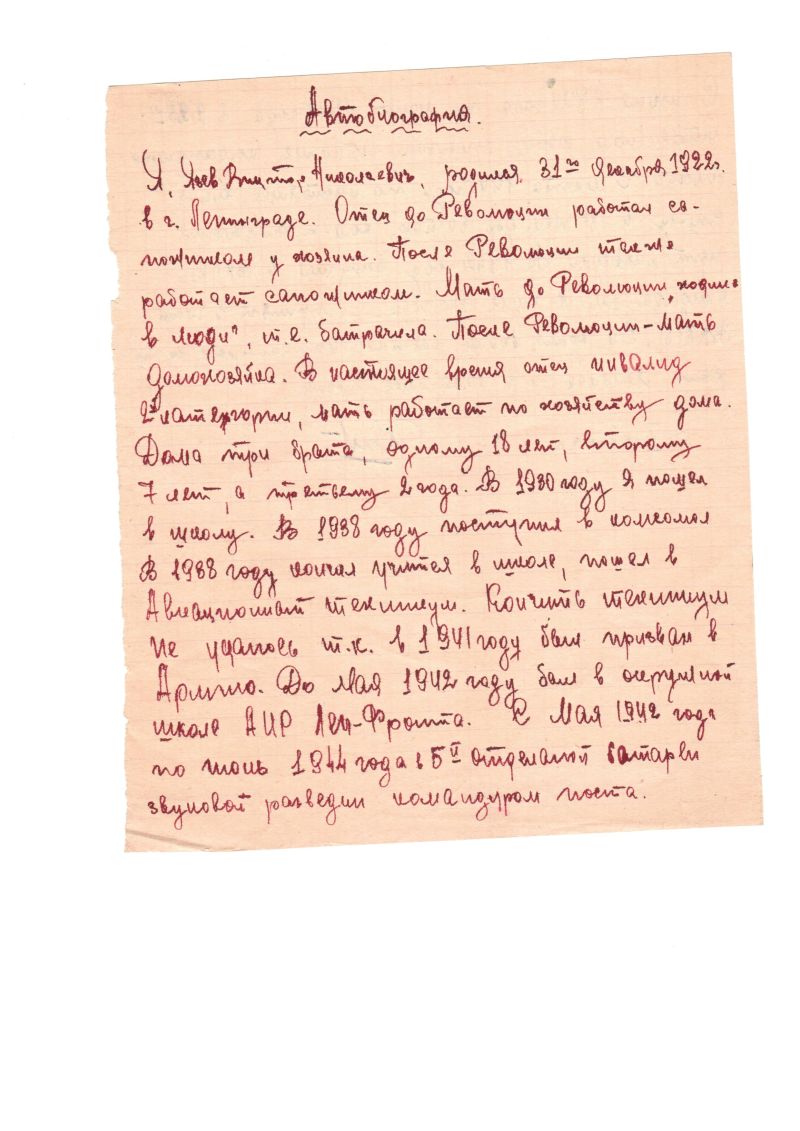 Автобиография.
Я, Яев Виктор Николаевич, родился 31го декабря 1922г.
в г. Ленинграде. Отец до Революции работал са-
пожником у хозяина. После Революции также
работает сапожником. Мать до Революции „ходила
в люди“, т.е. батрачила. После Революции – мать
домохозяйка. В настоящее время отец инвалид
2й категории, мать работает по хозяйству дома.
Дома три брата, одному 18 лет, второму
7 лет, а третьему 2 года. В 1930 году я пошел
в школу. В 1938 году поступил в комсомол
В 1938 году кончал учится в школе, пошел в
Авиационный техникум. Кончить техникум
не удалось т.к. в 1941 году был призван в
Армию. До Мая 1942 году был в окружной
школе АИР Лен-Фронта. С Мая 1942 года
по июнь 1944 года в 5й отдельной батареи
звуковой разведки командиром поста.